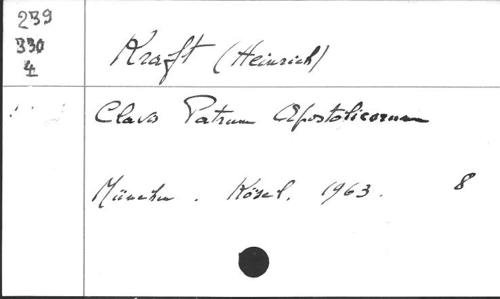 239
330
4
Kraft (Heinrich)
Clavis Patrum Apostolicorum
München. Kösel. 1963. 8